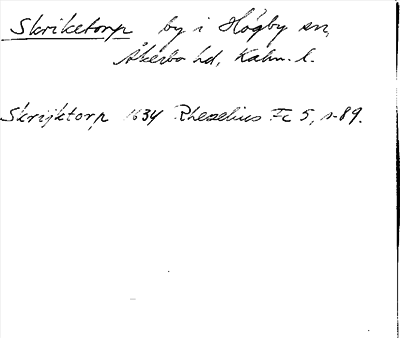 Skriketorp by i Högby sn,
Åkerbo hd, Kalm. l.
Skrijktorp 1634 Rhezelius Fc 5, s. 89.